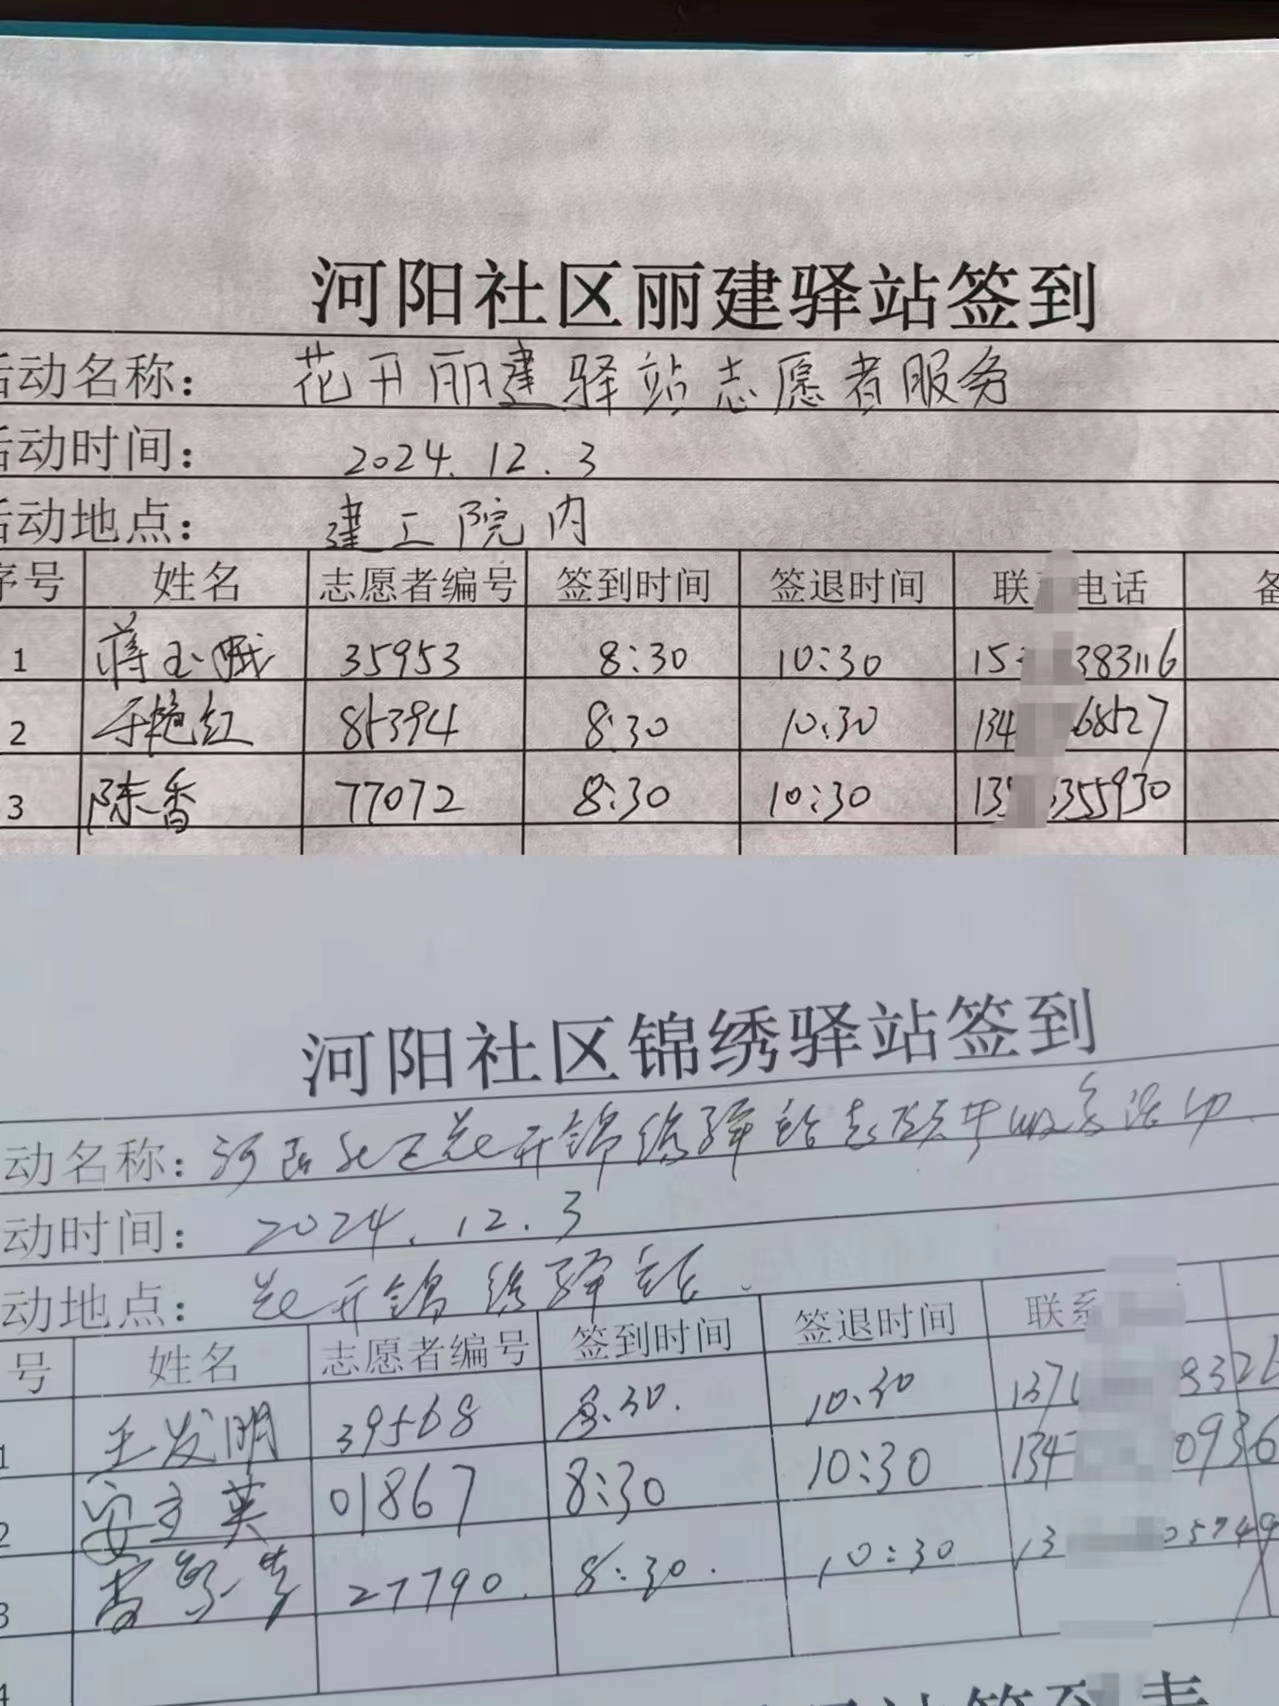 河阳社区丽建驿站签到
活动名称： 花开丽建驿站志愿者服务
活动时间： 2024.12.3
活动地点： 建工院内
序号 姓名 志愿者编号 签到时间 签退时间 联 电话 备
1 蒋玉娥 35953 8:30 10:30 15 383116
2 于艳红 85394 8:30 10:30 134 68527
3 陈香 77072 8:30 10:30 13 355930
河阳社区锦绣驿站签到
动名称： 河阳社区花开锦绣驿站志愿者服务活动
动时间： 2024.12.3
动地点： 花开锦绣驿站.
号 姓名 志愿者编号 签到时间 签退时间 联系
1 王发明 39568 8:30. 10:30 137 8326
2 安玉英 01867 8:30 10:30 134 0936
3 27790. 8:30. 10:30 13 05749
4